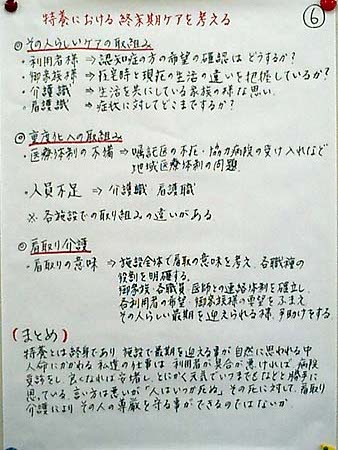 特養における終末期ケアを考える
⑥
◎その人らしいケアの取組み
・利用者様 ⇒ 認知症の方の希望の確認はどうするか?
・御家族様 ⇒ 在宅時と現在の生活の違いを把握しているか?
・介護職 ⇒ 生活を共にしている家族の様な思い
・看護職 ⇒ 症状に対してどこまでするか?
◎重度化への取組み
・医療体制の不備 ⇒ 嘱託医の不在・協力病院の受け入れなど
地域医療体制の問題
・人員不足 ⇒ 介護職 看護職
※各施設での取り組みの違いがある
◎看取り介護
・看取りの意味 ⇒ 施設全体で看取の意味を考え、各職種の
役割を明確する。
御家族・各職員、医師との連絡体制を確立し
各利用者の希望、御家族様の要望をふまえ
その人らしい最期を迎えられる様、手助けをする
(まとめ)
特養とは終身であり 施設で最期を迎える事が自然に思われる中
人命にかかわる私達の仕事は 利用者が具合が悪ければ 病院
受診をし 良くなれば安堵し、とにかく元気でいつまでもなどと勝手に
思っている。言い方は悪いが「人はいつか死ぬ」その死に対して、看取り
介護により その人の尊厳を守る事ができるのではないか